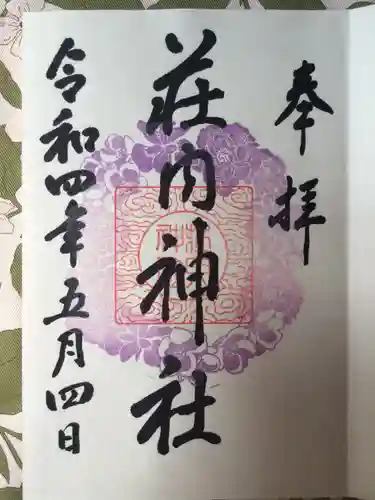 奉拝
荘内神社
令和四年五月四日